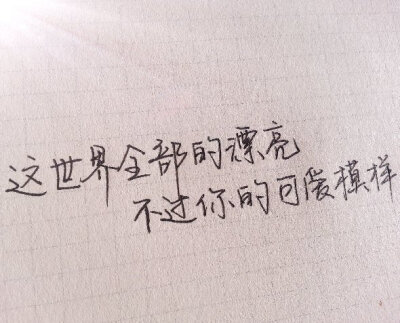 这世界全部的漂亮
不过你的可爱模样